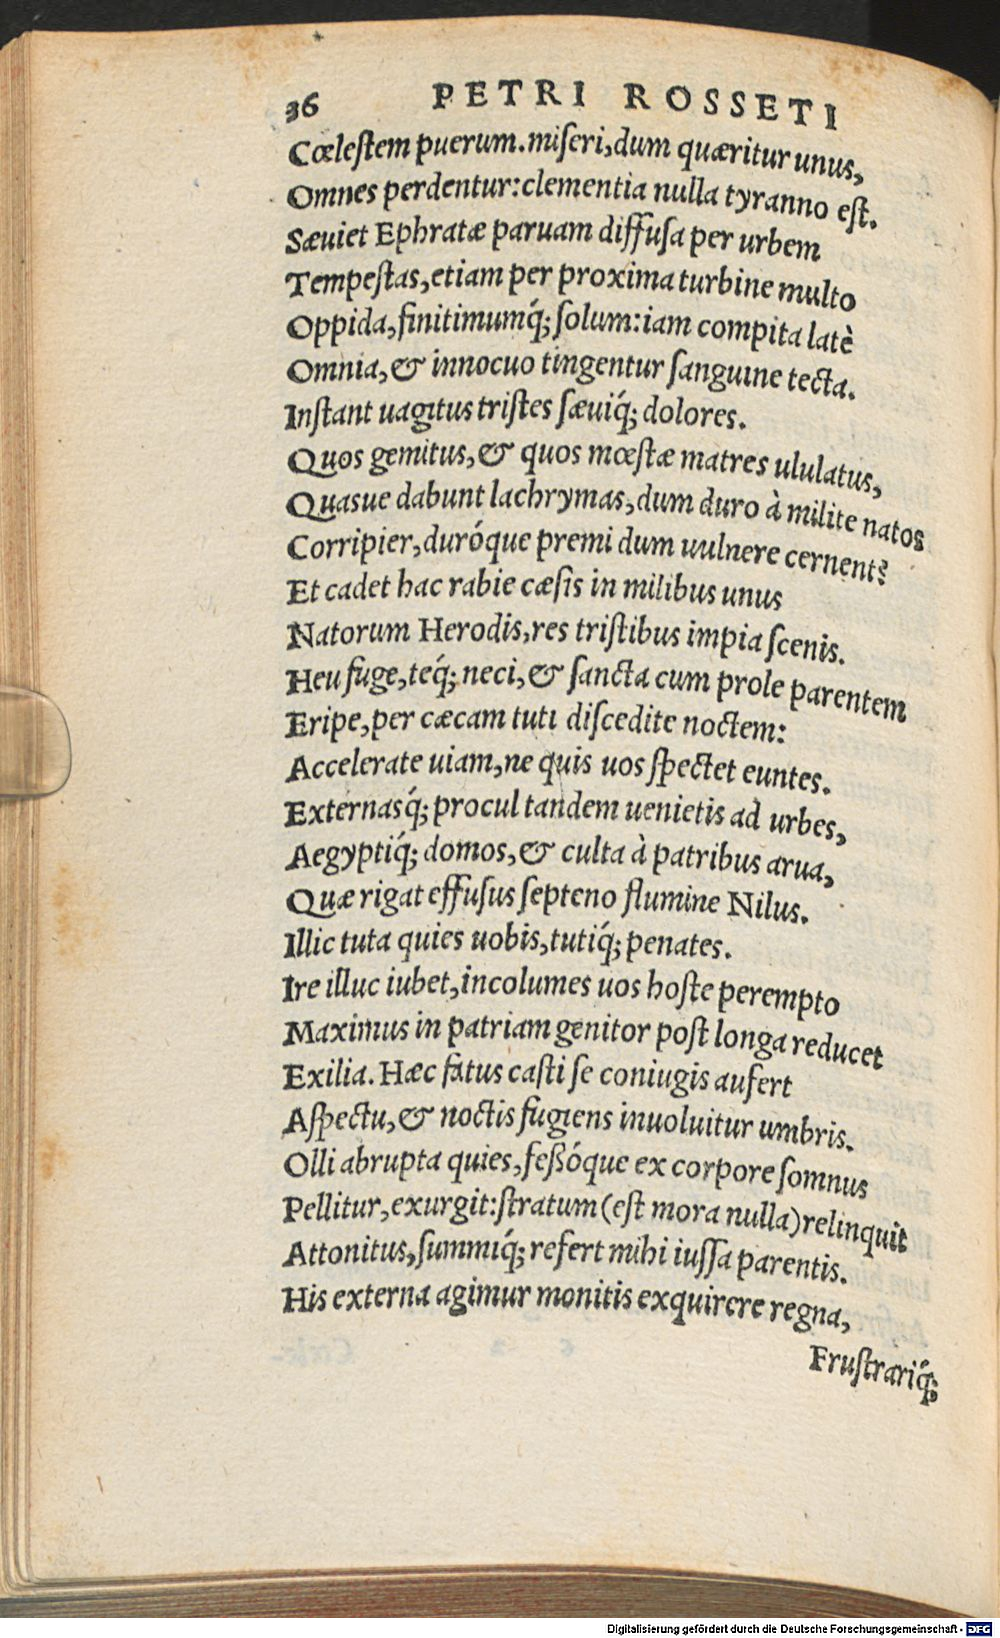 36 PETRI ROSSETI
Cœleſtem puerum. miſeri, dum quæritur unus,
Omnes perdentur: clementia nulla tyranno eſt.
Sæuiet Ephratæ paruam diffuſa per urbem
Tempeſtas, etiam per proxima turbine multo
Oppida, finitimumq́; ſolum: iam compita latè
Omnia, & innocuo tingentur ſanguine tecta.
Inſtant uagitus triſtes ſæuiq́; dolores.
Quos gemitus, & quos mœſtæ matres ululatus,
Quasue dabunt lachrymas, dum duro à milite natos
Corripier, duróque premi dum uulnere cernent?
Et cadet hac rabie cæſis in milibus unus
Natorum Herodis, res triſtibus impia ſcenis.
Heu fuge, teq́; neci, & ſancta cum prole parentem
Eripe, per cæcam tuti diſcedite noctem:
Accelerate uiam, ne quis uos ſpectet euntes.
Externasq́; procul tandem uenietis ad urbes,
Aegyptiq́; domos, & culta à patribus arua,
Quæ rigat effuſus ſepteno flumine Nilus.
Illic tuta quies uobis, tutiq́; penates.
Ire illuc iubet, incolumes uos hoſte perempto
Maximus in patriam genitor poſt longa reducet
Exilia. Hæc fatus caſti ſe coniugis aufert
Aſpectu, & noctis fugiens inuoluitur umbris.
Olli abrupta quies, feſſóque ex corpore ſomnus
Pellitur, exurgit: ſtratum (eſt mora nulla) relinquit
Attonitus, ſummiq́; refert mihi iuſſa parentis.
His externa agimur monitis exquirere regna,
Fruſtrariq́;
Digitalisierung gefördert durch die Deutsche Forschungsgemeinschaft - DFG